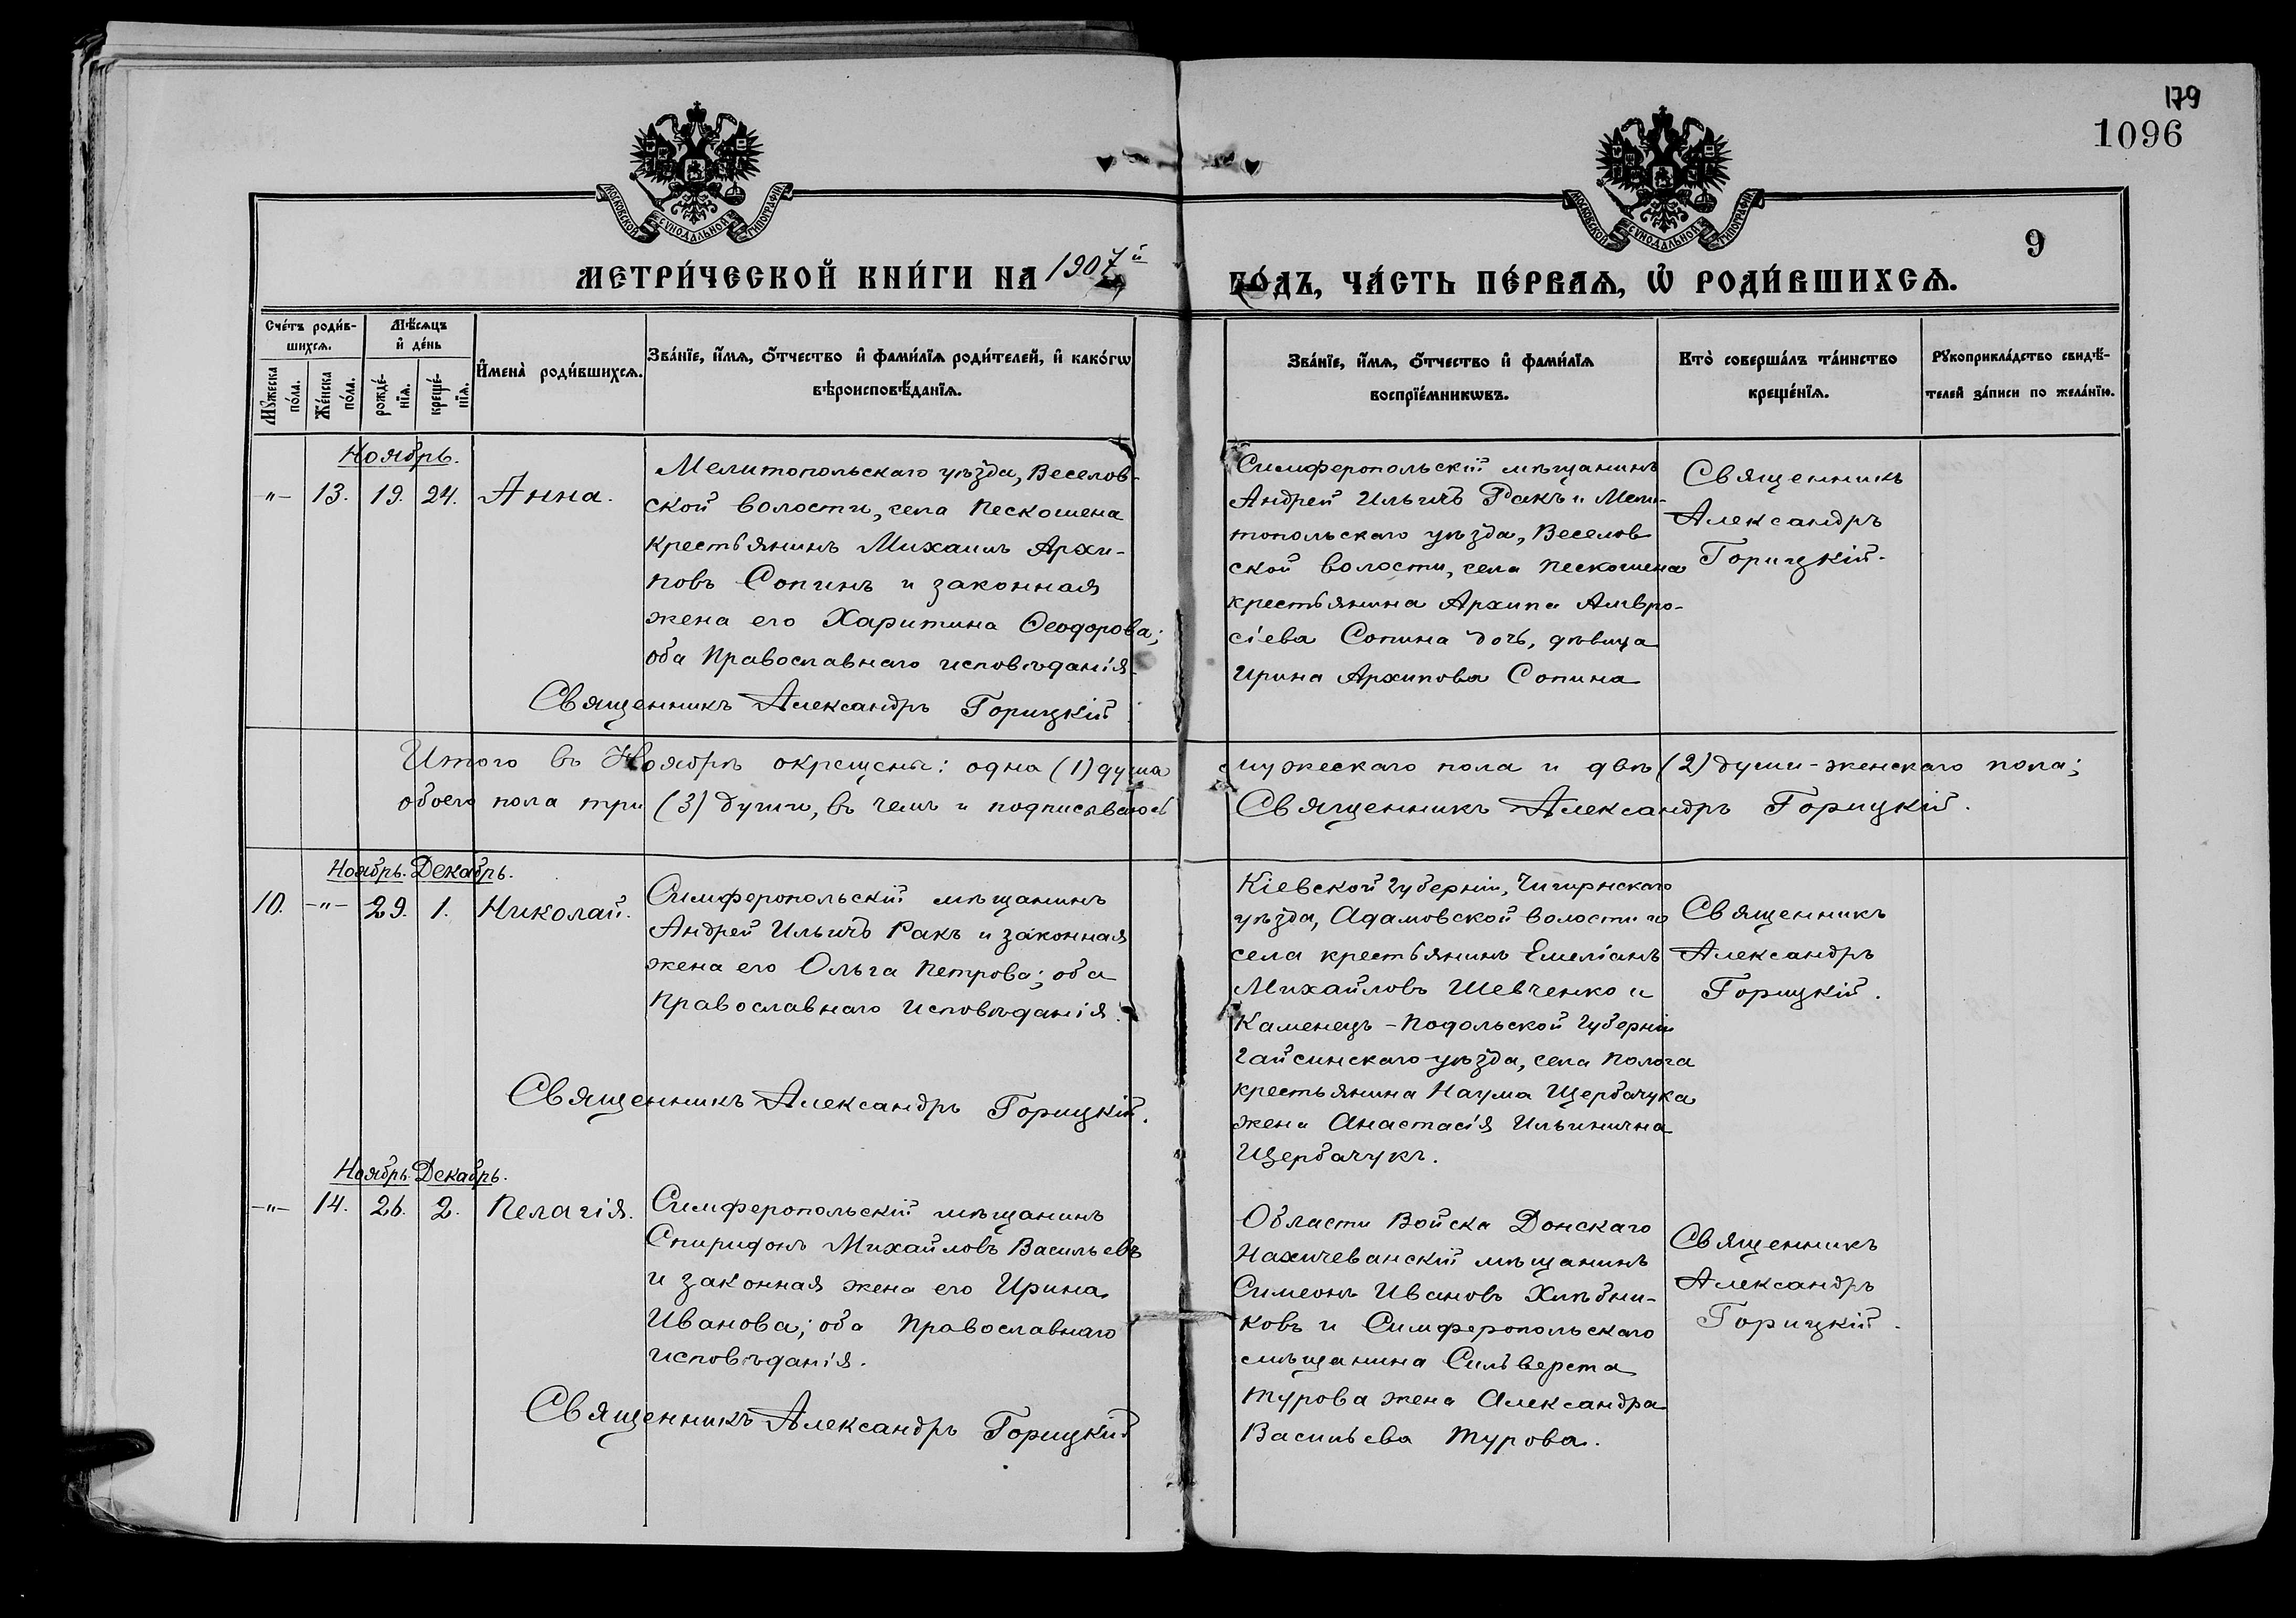 179
1096
МОСКОВСКОЙ СѴНОДАЛЬНОЙ ТИПОГРАФІИ
МОСКОВСКОЙ СѴНОДАЛЬНОЙ ТИПОГРАФІИ
9
МЕТРИ́ЧЕСКОЙ КНИ́ГИ НА 1907й ГО́ДЪ, ЧА́СТЬ ПЕ́РВАѦ, Ѿ РОДИ́ВШИХСѦ.
Сче́тъ роди́в-
шихсѧ.
Мꙋ́жеска по́ла.
Же́нска по́ла.
Мѣ́сѧцъ
и҆ де́нь
рожде́-
нїѧ.
креще́-
нїѧ.
И҆мена̀ роди́вшихсѧ.
Зва́нїе, и҆́мѧ, ѻ҆́тчество и҆ фами́лїѧ роди́телей, и҆ како́гѡ
вѣроисповѣ́данїѧ.
Зва́нїе, и҆́мѧ, ѻ҆́тчество и҆ фами́лїѧ
воспрїе́мникѡвъ.
Кто̀ соверша́лъ та́инство
креще́нїѧ.
Рꙋкоприкла́дство свидѣ́-
телей за́писи по жела́нїю.
Ноябрь.
-"- 13. 19. 24. Анна.
Мелитопольскаго уѣзда, Веселов-
ской волости, села Пескошена
крестьянинъ Михаилъ Архи-
повъ Сопинъ и законная
жена его Харитина Ѳеодорова;
оба Православнаго исповѣданія.
Священникъ Александръ Горицкій.
Симферопольскій мѣщанинъ
Андрей Ильичъ Ракъ и Мели-
топольскаго уѣзда, Веселов
ской волости, села Пескошена
крестьянина Архипа Амвро-
сіева Сопина дочь, дѣвица
Ирина Архипова Сопина
Священникъ
Александръ
Горицкій.
Итого въ Ноябрѣ окрещены: одна (1) душа мужескаго пола и двѣ (2) души-женскаго пола;
обоего пола три (3) души, въ чемъ и подписываюсь Священникъ Александръ Горицкій.
Ноябрь. Декабрь.
10. -"- 29. 1. Николай.
Симферопольскій мѣщанинъ
Андрей Ильичъ Ракъ и законная
жена его Ольга Петрова; оба
Православнаго исповѣданія.
Священникъ Александръ Горицкій.
Кіевской губерніи, Чигирнскаго
уѣзда, Адамовской волости го
села крестьянинъ Емеліанъ
Михайловъ Шевченко и
Каменецъ-Подольской губерніи
Гайсинскаго уѣзда, села Полога
крестьянина Наума Щербачука
жена Анастасія Ильинична
Щербачукъ.
Священникъ
Александръ
Горицкій.
Ноябрь. Декабрь.
-"- 14. 26. 2. Пелагія.
Симферопольскій мѣщанинъ
Спиридонъ Михайловъ Васильевъ
и законная жена его Ирина
Иванова; оба Православнаго
исповѣданія.
Священникъ Александръ Горицкій
Области Войска Донскаго
Нахичеванскій мѣщанинъ
Симеонъ Ивановъ Хлѣбни-
ковъ и Симферопольскаго
мѣщанина Сильверста
Турова жена Александра
Васильева Турова.
Священникъ
Александръ
Горицкій.